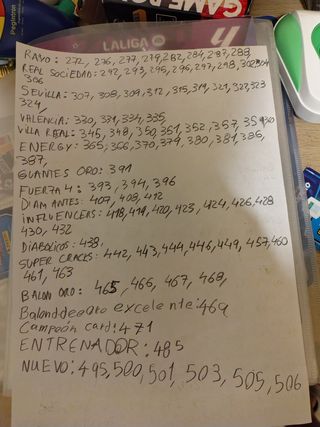 GAME BO
LALIGA
RAYO: 272, 276, 277, 279, 282, 284, 287, 288,
REAL SOCIEDAD: 292, 293, 295, 296, 297, 298, 302 304
306
SEVILLA: 307, 308, 309, 312, 315, 319, 321, 322, 323
324,
VALENCIA: 330, 331, 334, 335,
VILLA REAL: 345, 348, 350, 351, 352, 357,
ENERGY: 365, 366, 370, 379, 380, 381, 386,
387,
GUANTES ORO: 391
FUERZA 4: 393, 394, 396
DIAMANTES: 407, 408, 412
INFLUENCERS: 418, 419, 420, 423, 424, 426, 428
430, 432
DIABOLICOS: 438,
SUPER CRACKS: 442, 443, 444, 446, 449, 457, 460
461, 463
BALON ORO: 465, 466, 467, 468,
excelente: 469
Campeón card: 471
ENTRENADOR: 485
NUEVO: 495, 500, 501, 503, 505, 506